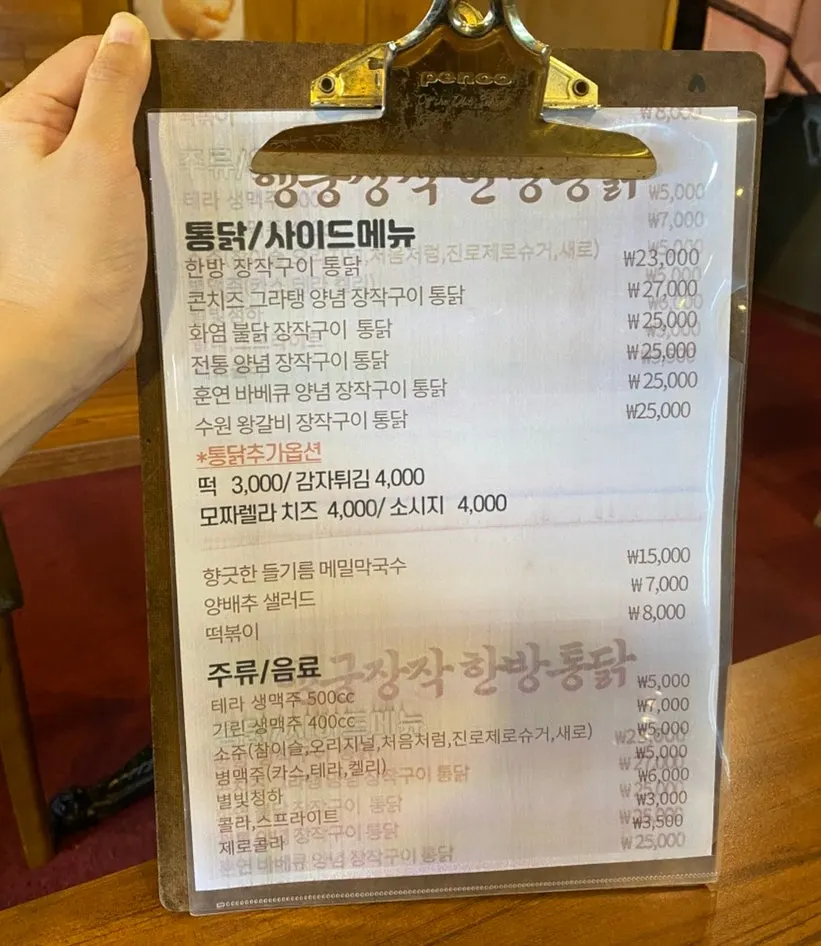 penco
행궁장작 한방통닭
통닭/사이드메뉴
한방 장작구이 통닭 ₩23,000
콘치즈 그라탱 양념 장작구이 통닭 ₩27,000
화염 불닭 장작구이 통닭 ₩25,000
전통 양념 장작구이 통닭 ₩25,000
훈연 바베큐 양념 장작구이 통닭 ₩25,000
수원 왕갈비 장작구이 통닭 ₩25,000
*통닭추가옵션
떡 3,000/ 감자튀김 4,000
모짜렐라 치즈 4,000/ 소시지 4,000
향긋한 들기름 메밀막국수 ₩15,000
양배추 샐러드 ₩7,000
떡볶이 ₩8,000
주류/음료
테라 생맥주 500cc ₩5,000
기린 생맥주 400cc ₩7,000
소주(참이슬,오리지널,처음처럼,진로제로슈거,새로) ₩5,000
병맥주(카스,테라,켈리) ₩5,000
별빛청하 ₩6,000
콜라,스프라이트 ₩3,000
제로콜라 ₩3,500